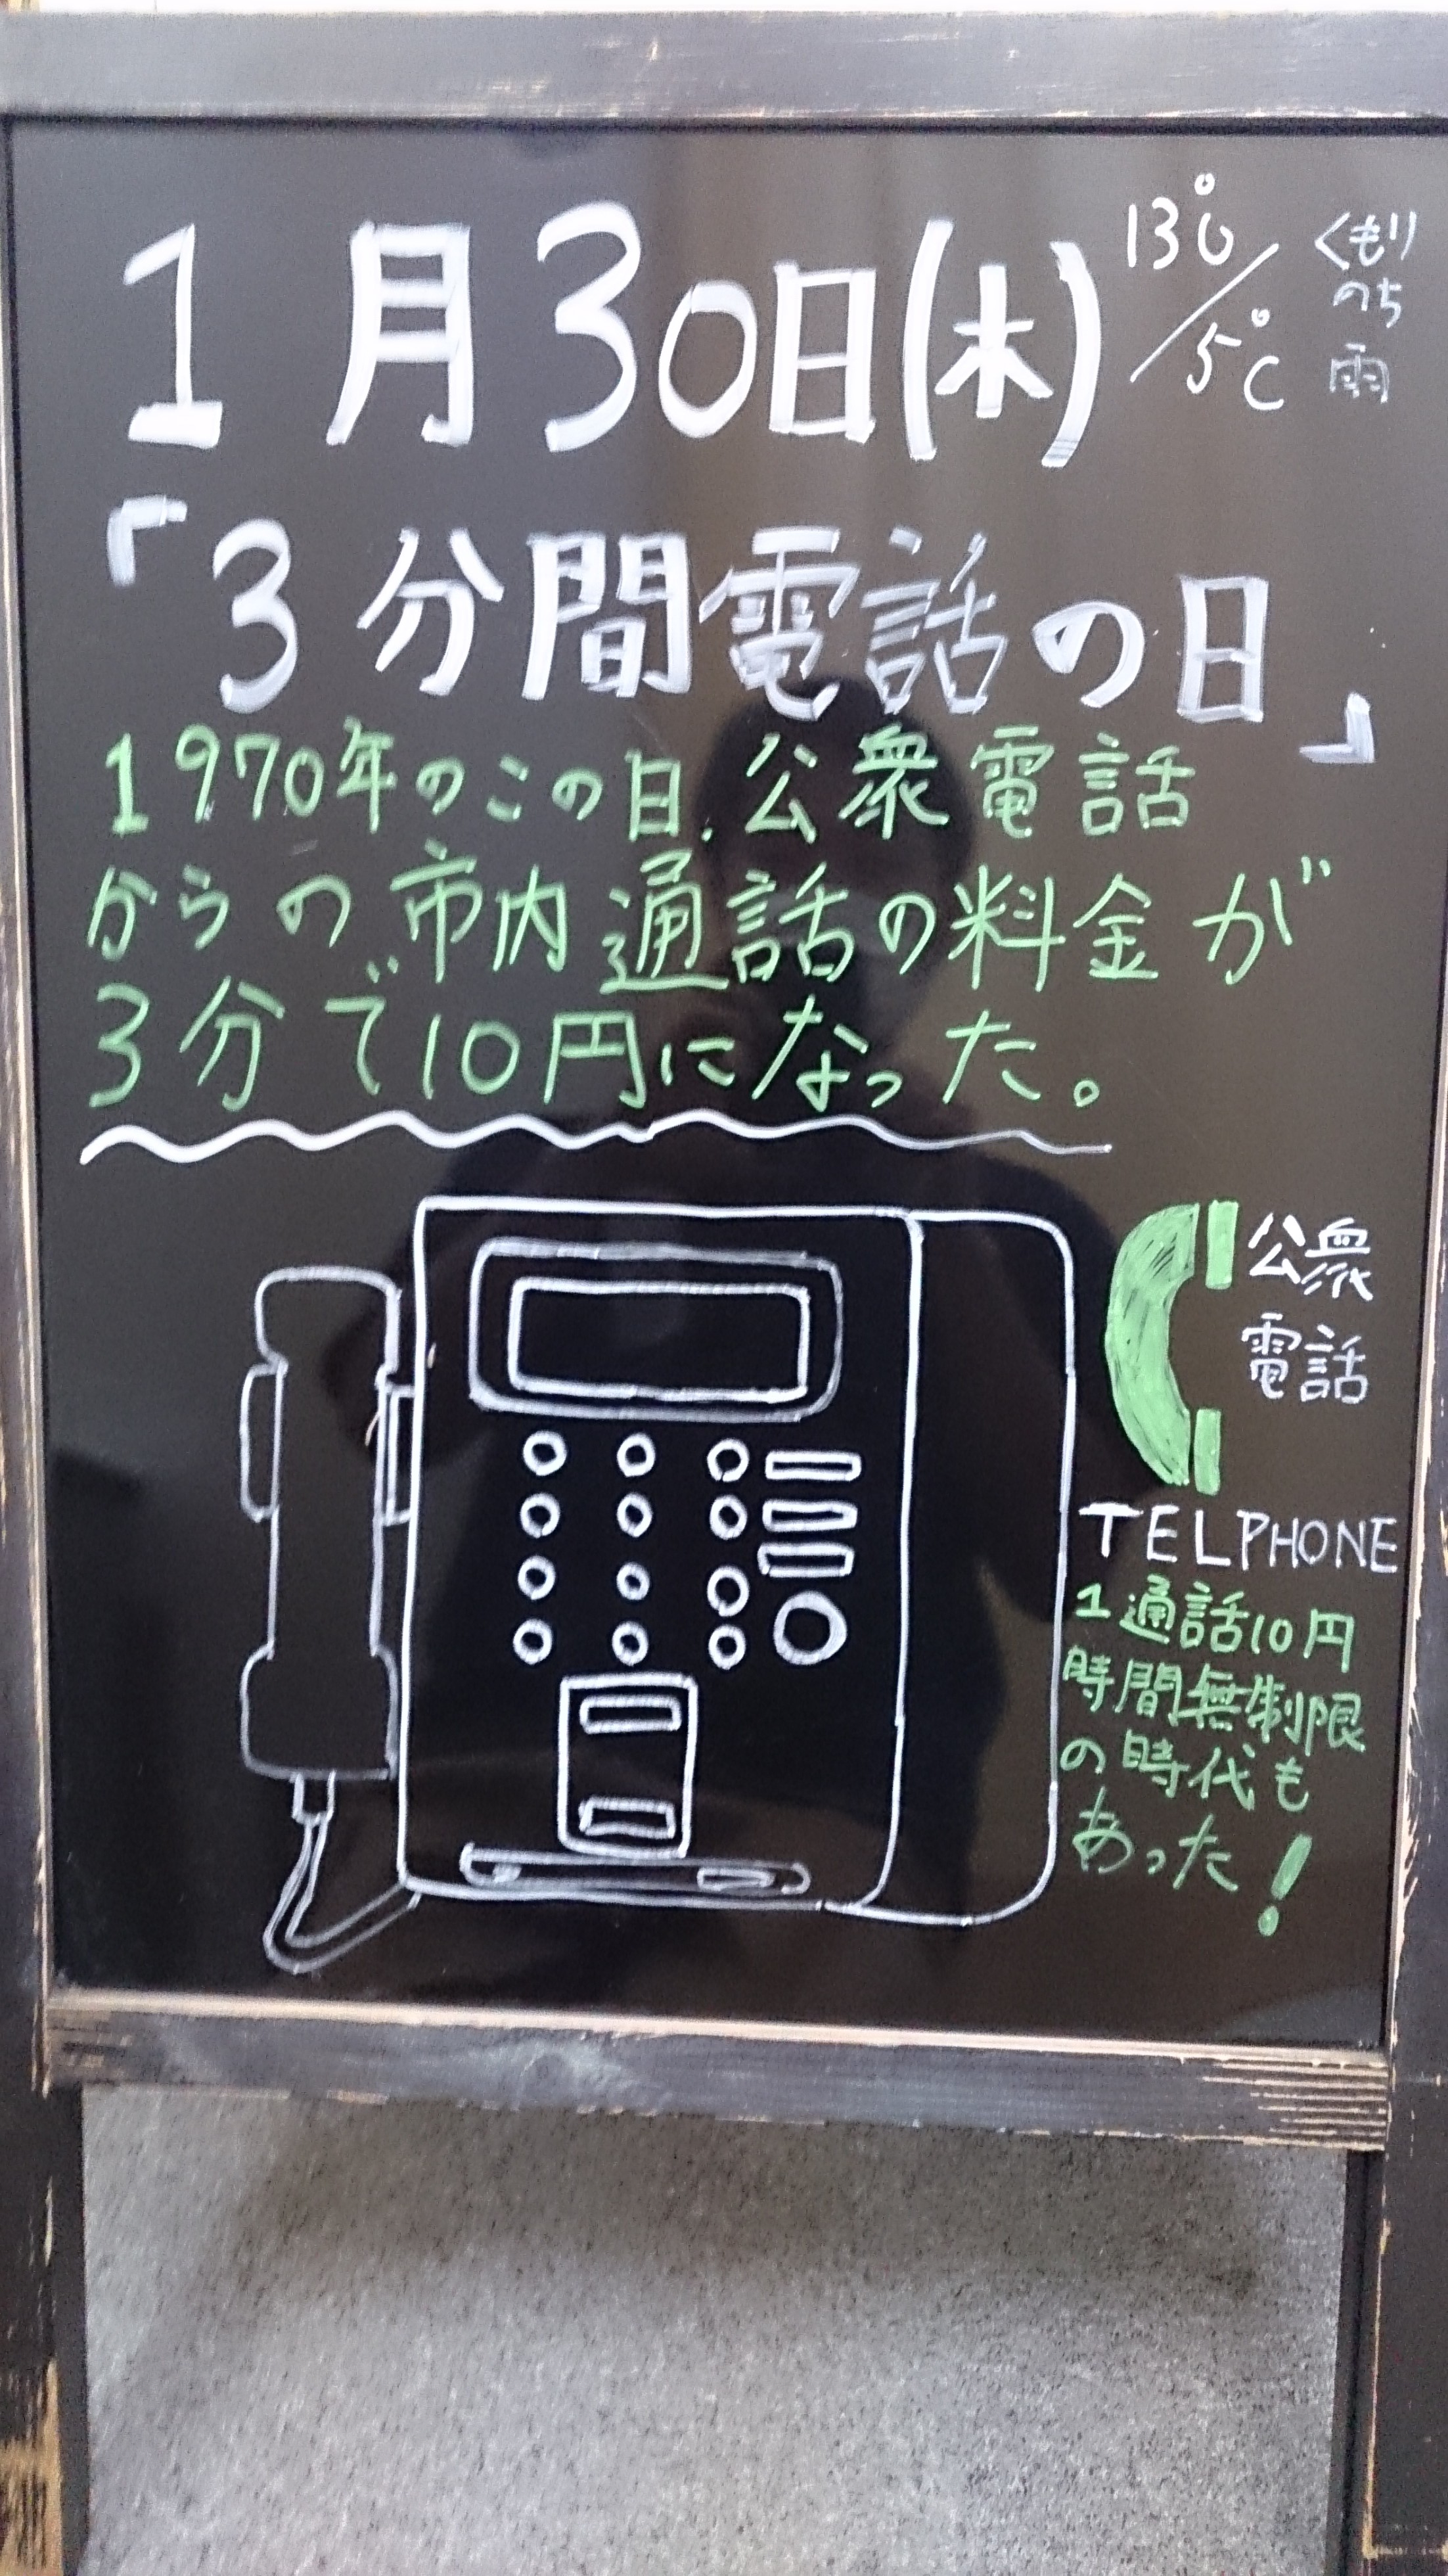 1月30日(木)
13℃/5℃
くもり
のち
雨
『3分間電話の日』
1970年のこの日、公衆電話
からの市内通話の料金が
3分で10円になった。
公衆
電話
TELPHONE
1通話10円
時間無制限
の時代も
あった!